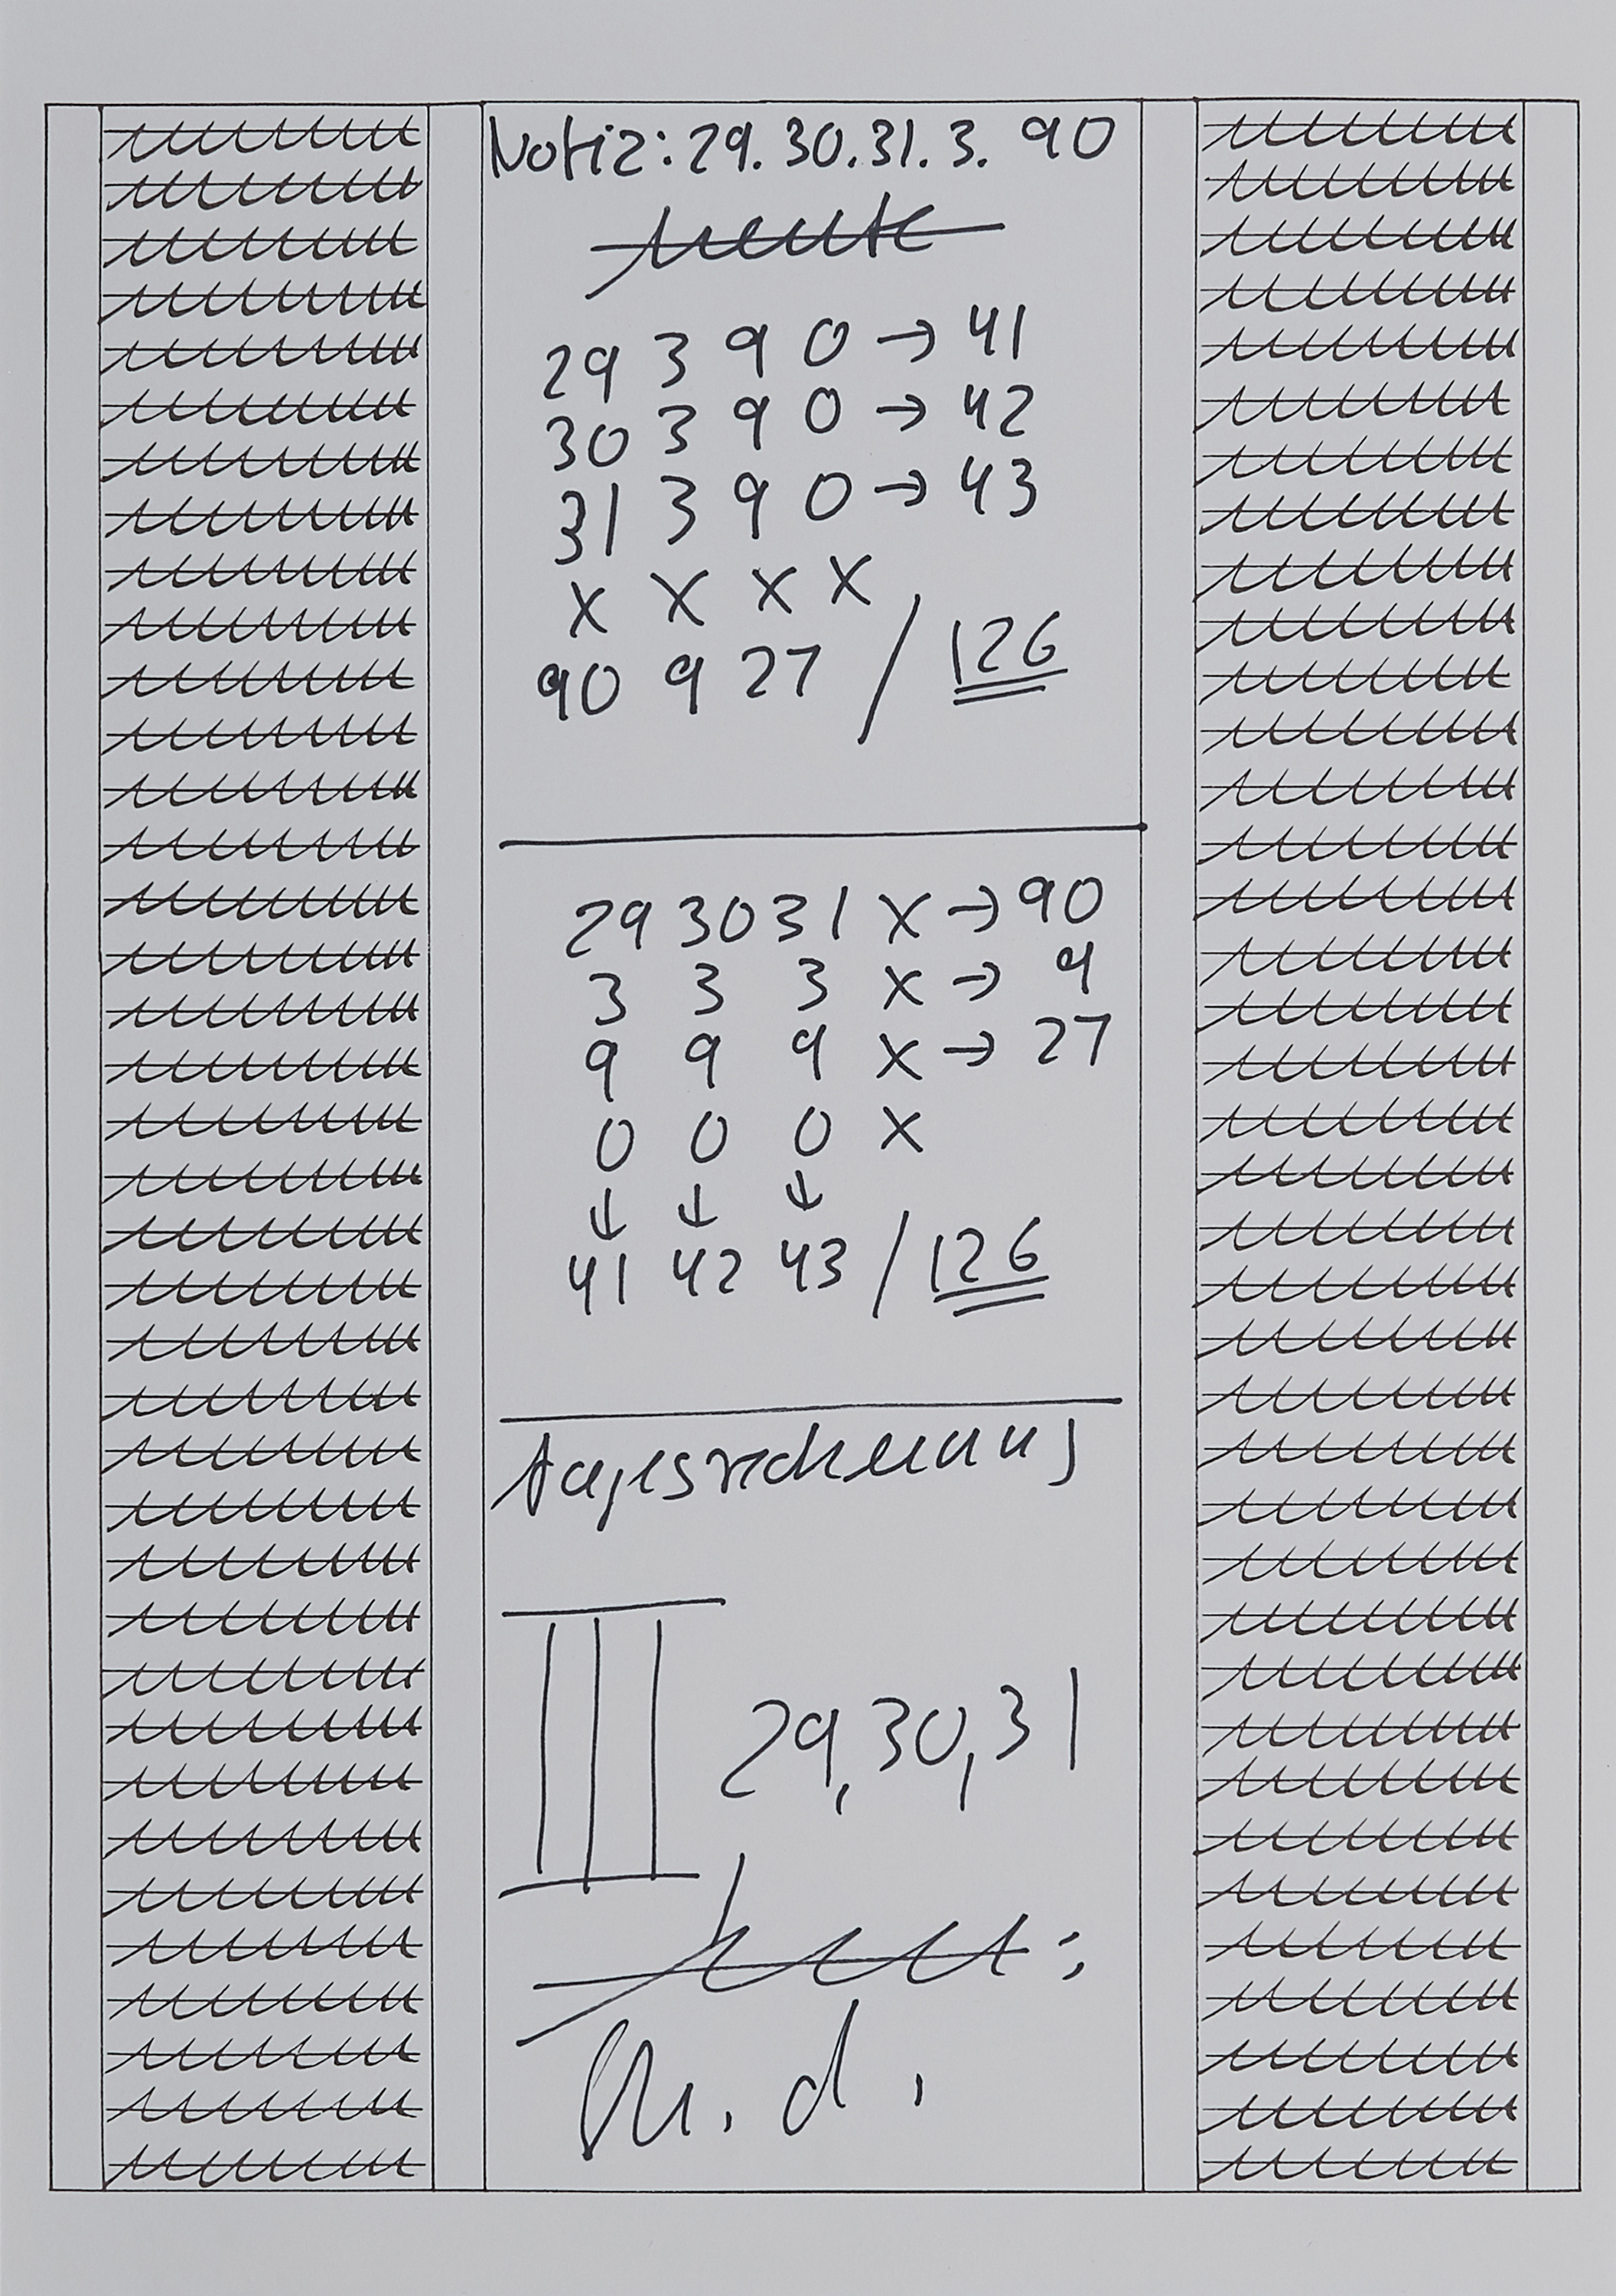 Notiz: 29. 30. 31. 3. 90
heute
29 3 9 0 → 41
30 3 9 0 → 42
31 3 9 0 → 43
x x x x
90 9 27 / 126
29 30 31 x → 90
3 3 3 x → 9
9 9 9 x → 27
0 0 0 x
↓ ↓ ↓
41 42 43 / 126
Tagesrechnung
III 29, 30, 31
M. d.